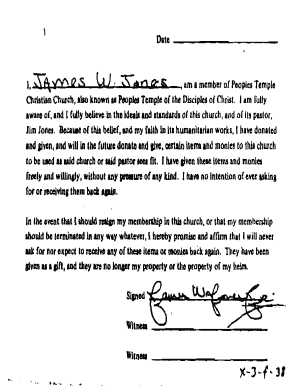 1
Date
I, JAMES W. JONES, am a member of Peoples Temple
Christian Church, also known as Peoples Temple of the Disciples of Christ. I am fully
aware of, and I fully believe in the ideals and standards of this church, and of its pastor,
Jim Jones. Because of this belief, and my faith in its humanitarian works, I have donated
and given, and will in the future donate and give, certain items and monies to this church
to be used as said church or said pastor sees fit. I have given these items and monies
freely and willingly, without any pressure of any kind. I have no intention of ever asking
for or receiving them back again.
In the event that I should resign my membership in this church, or that my membership
should be terminated in any way whatever, I hereby promise and affirm that I will never
ask for nor expect to receive any of these items or monies back again. They have been
given as a gift, and they are no longer my property or the property of my heirs.
Signed James W Jones Jr.
Witness
Witness
X-3-f-38